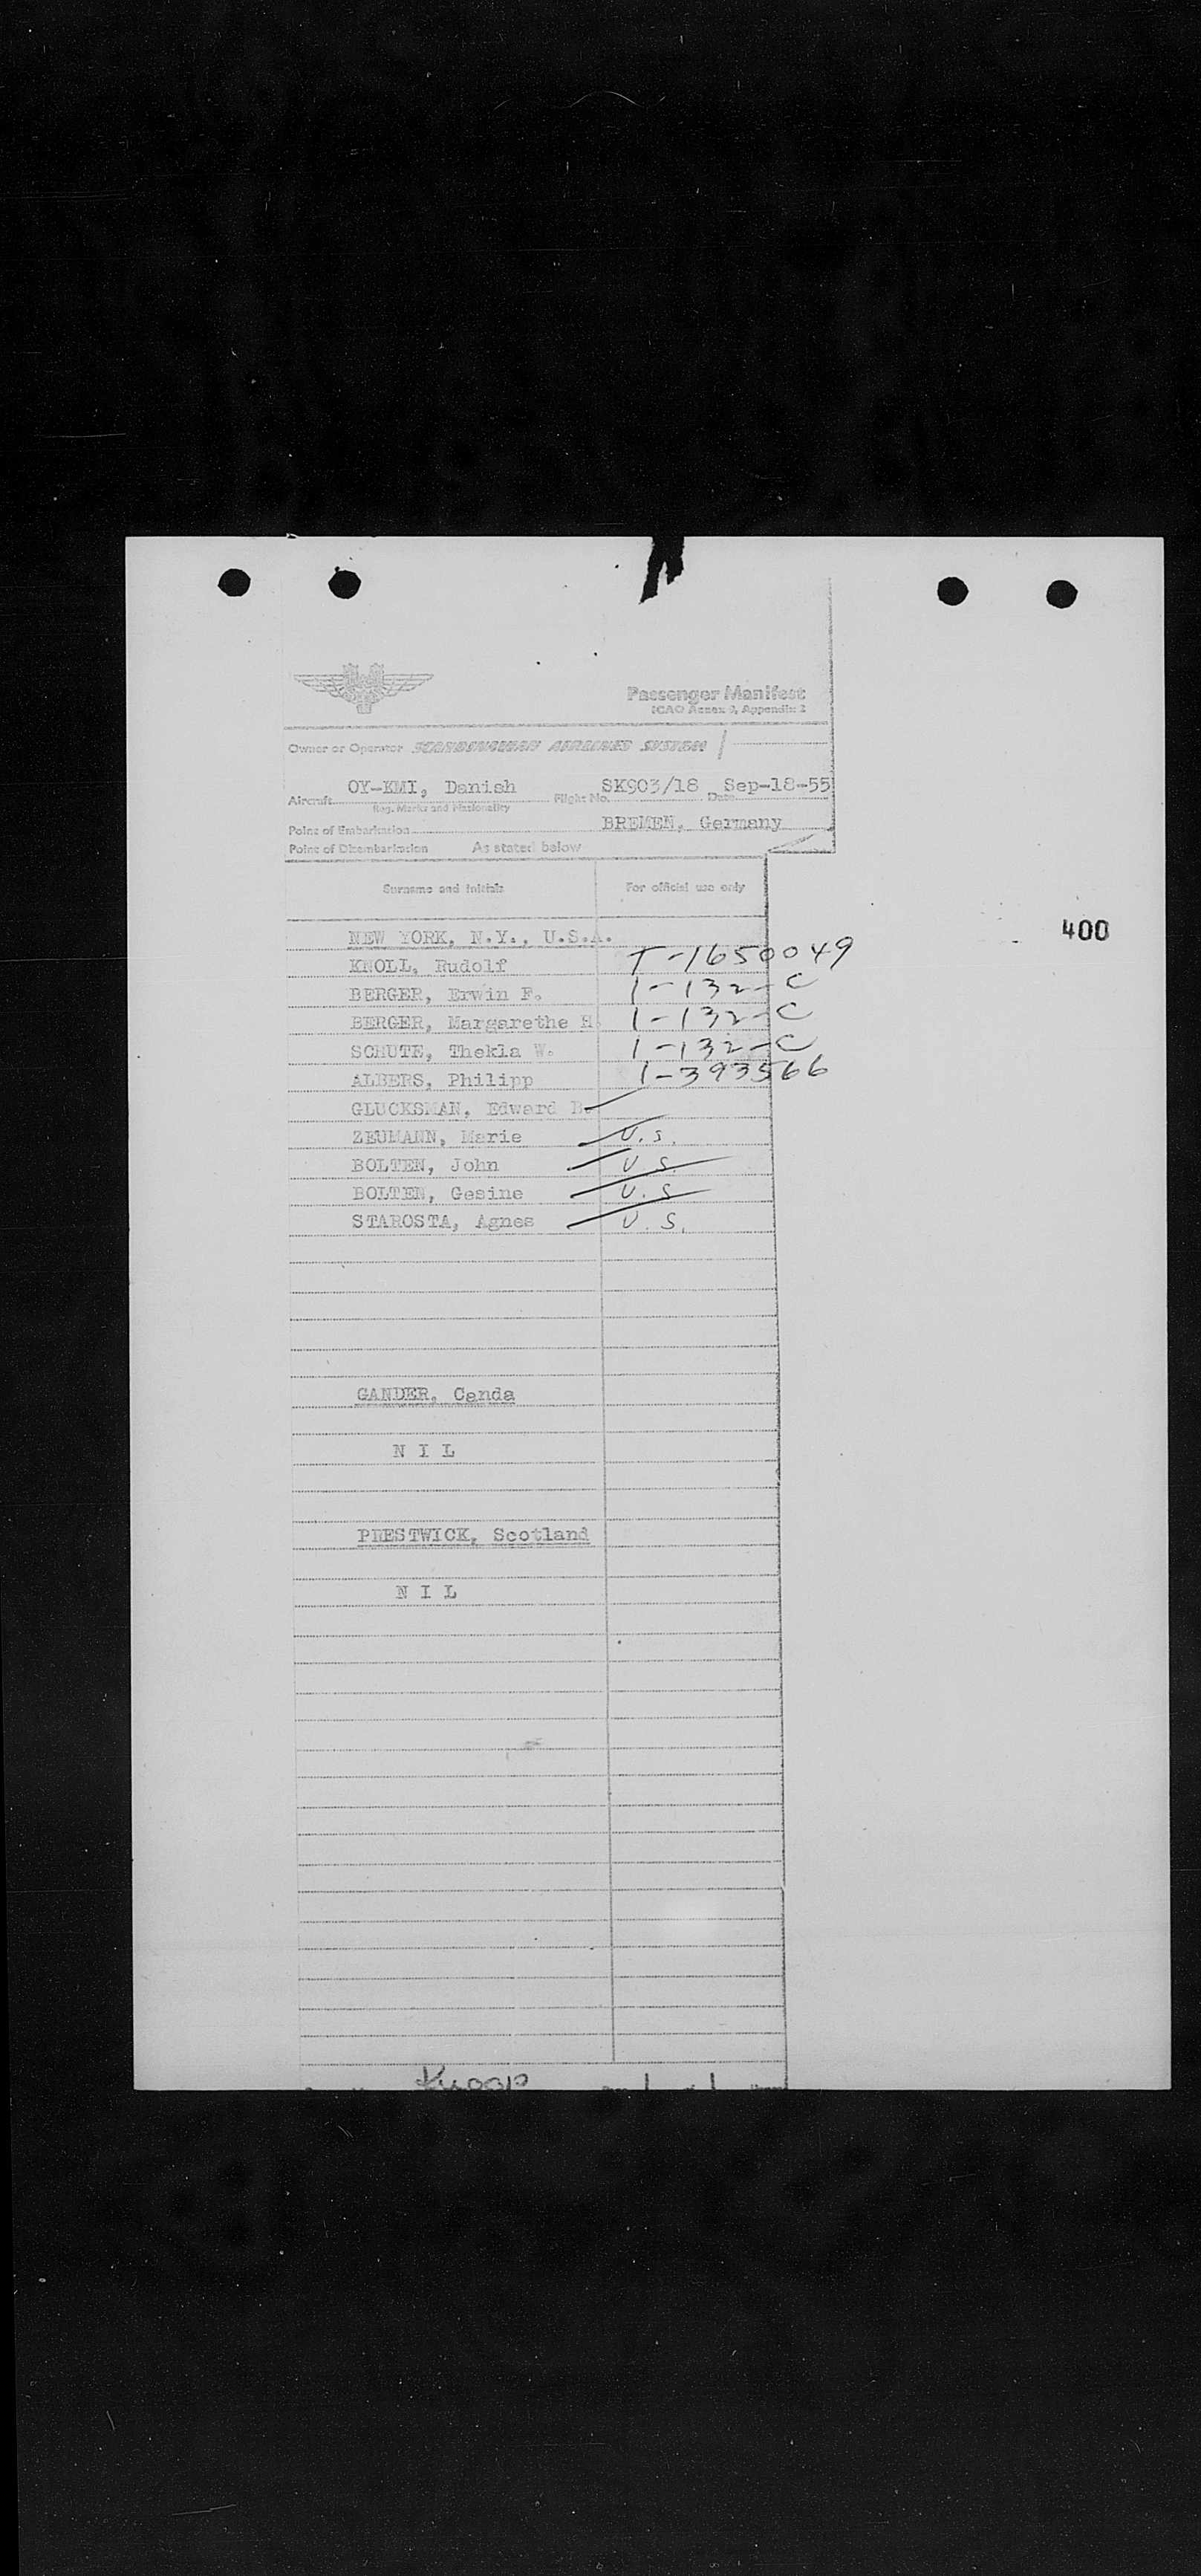 Passenger Manifest
ICAO Annex 9, Appendix 2
Owner or Operator SCANDINAVIAN AIRLINES SYSTEM
OY-KMI, Danish SK903/18 Sep-18-55
Aircraft Flight No. Date
Reg. Marks and Nationality
BREMEN, Germany
Point of Embarkation
Point of Disembarkation As stated below
Surname and initials For official use only
400
NEW YORK, N.Y., U.S.A.
KNOLL, Rudolf T-1650049
BERGER, Erwin F. 1-132-C
BERGER, Margarethe H. 1-132-C
SCHUTE, Thekla W. 1-132-C
ALBERS, Philipp 1-393566
GLUCKSMAN, Edward B.
ZEUMANN, Marie U.S.
BOLTEN, John U.S.
BOLTEN, Gesine U.S
STAROSTA, Agnes U.S.
GANDER, Canda
N I L
PRESTWICK, Scotland
N I L
Knoop